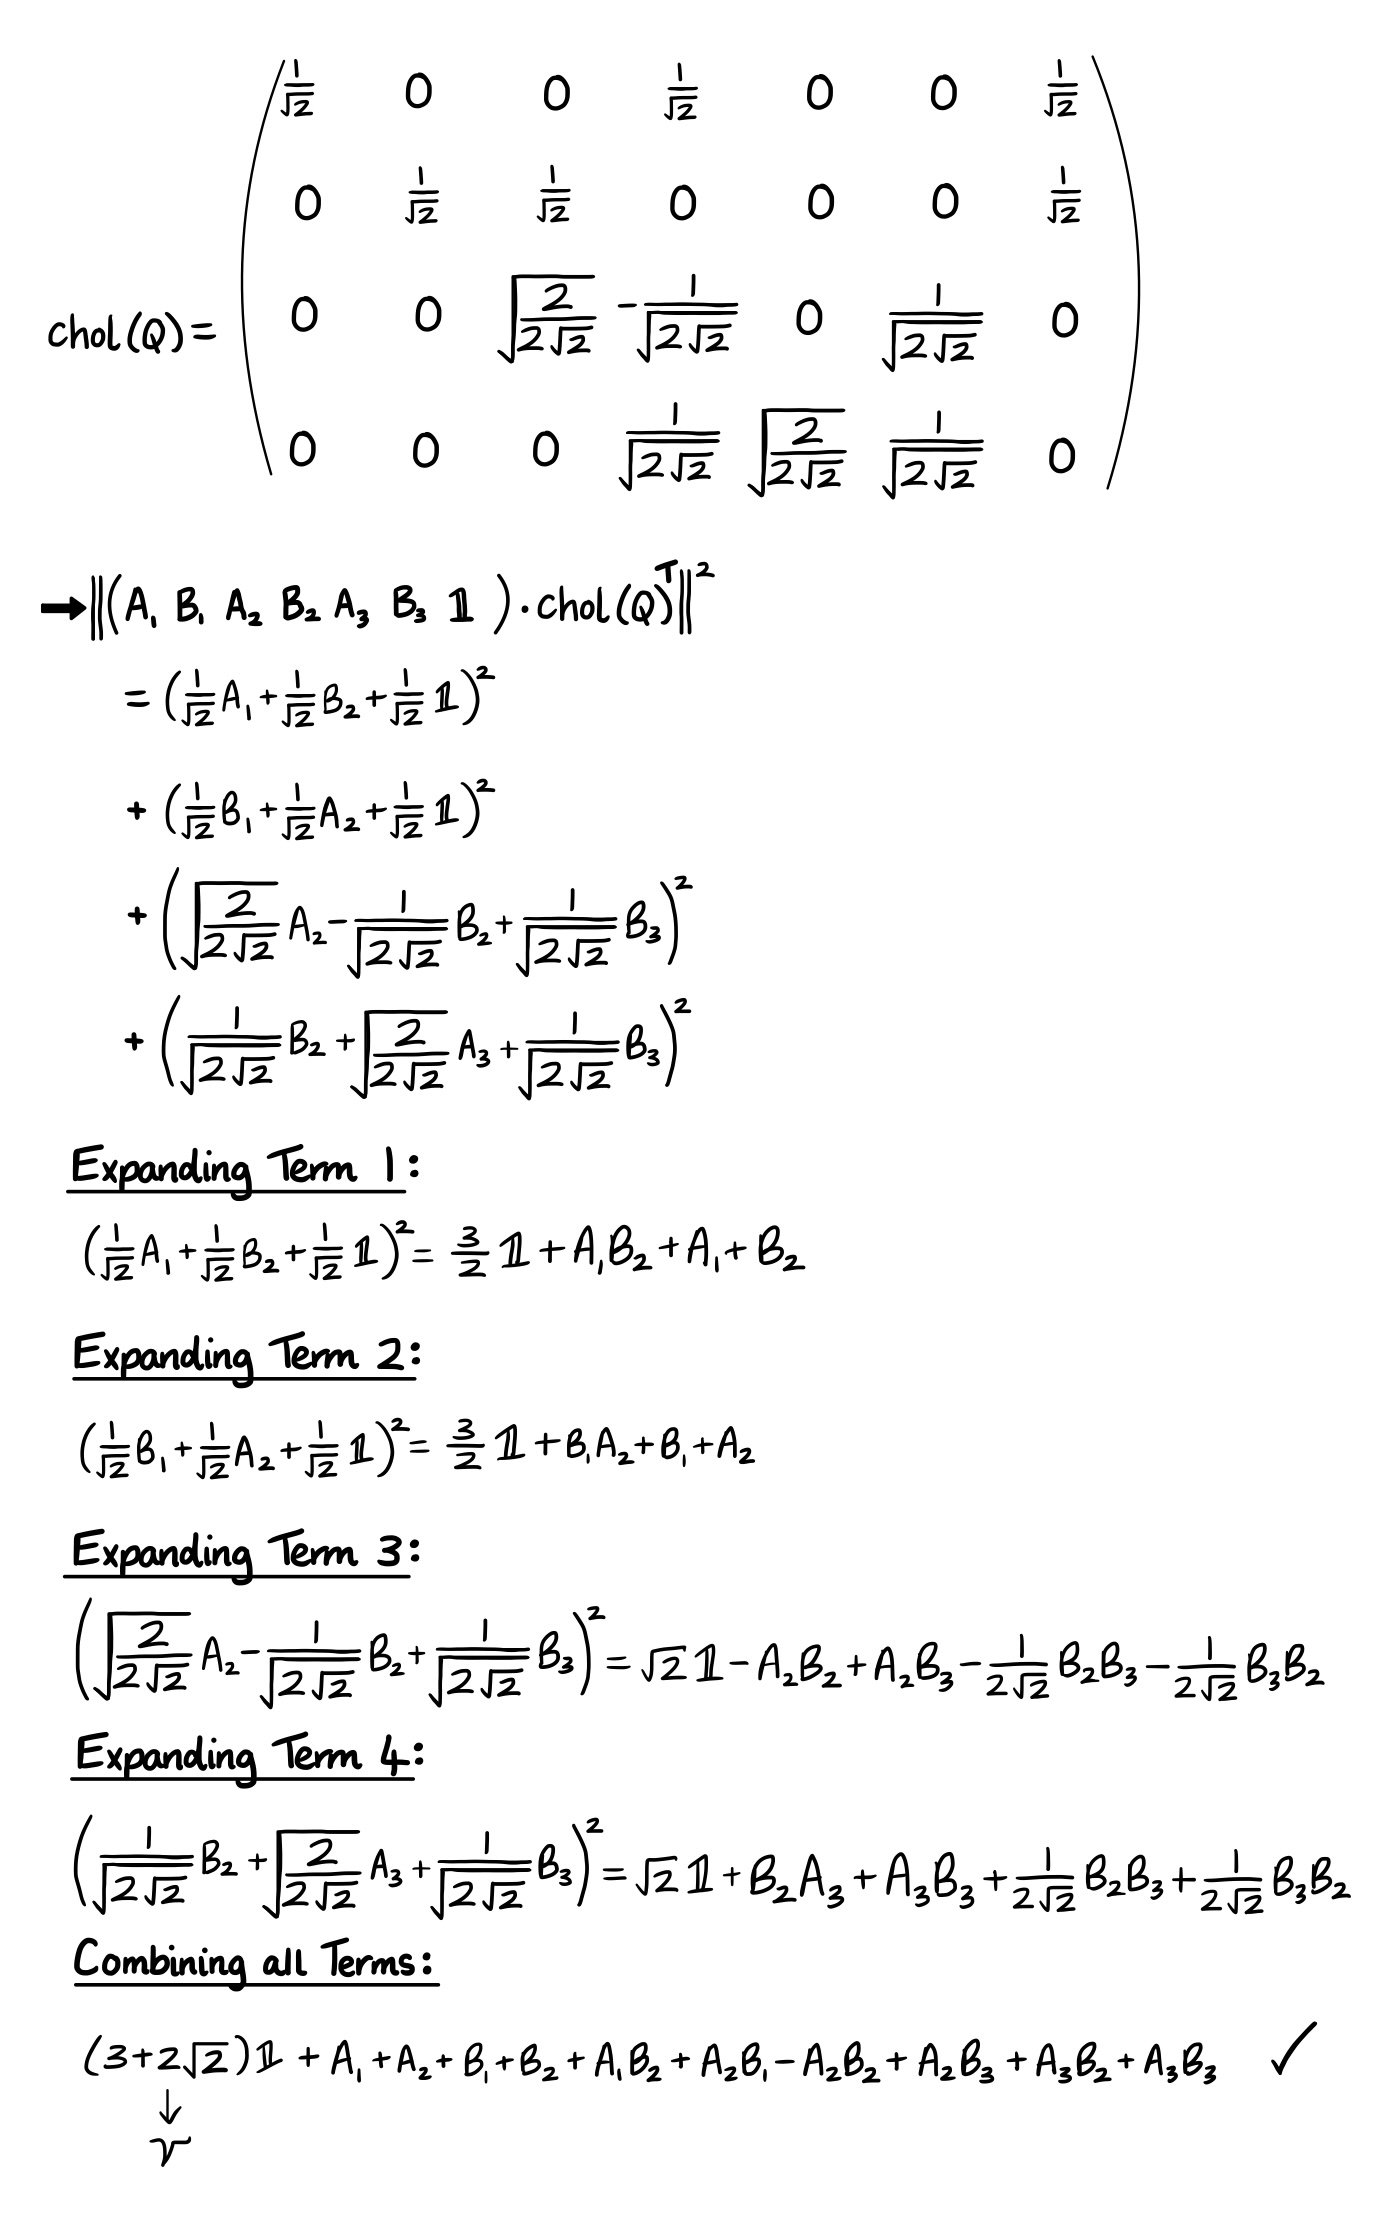 chol(Q) = ( 1/√2 0 0 1/√2 0 0 1/√2
0 1/√2 1/√2 0 0 0 1/√2
0 0 √(2/(2√2)) -1/√(2√2) 0 1/√(2√2) 0
0 0 0 1/√(2√2) √(2/(2√2)) 1/√(2√2) 0 )
➡ ||(A₁ B₁ A₂ B₂ A₃ B₃ 𝟙) · chol(Q)ᵀ||²
= (1/√2 A₁ + 1/√2 B₂ + 1/√2 𝟙)²
+ (1/√2 B₁ + 1/√2 A₂ + 1/√2 𝟙)²
+ (√(2/(2√2)) A₂ - 1/√(2√2) B₂ + 1/√(2√2) B₃)²
+ (1/√(2√2) B₂ + √(2/(2√2)) A₃ + 1/√(2√2) B₃)²
Expanding Term 1:
(1/√2 A₁ + 1/√2 B₂ + 1/√2 𝟙)² = 3/2 𝟙 + A₁B₂ + A₁ + B₂
Expanding Term 2:
(1/√2 B₁ + 1/√2 A₂ + 1/√2 𝟙)² = 3/2 𝟙 + B₁A₂ + B₁ + A₂
Expanding Term 3:
(√(2/(2√2)) A₂ - 1/√(2√2) B₂ + 1/√(2√2) B₃)² = √2 𝟙 - A₂B₂ + A₂B₃ - 1/(2√2) B₂B₃ - 1/(2√2) B₃B₂
Expanding Term 4:
(1/√(2√2) B₂ + √(2/(2√2)) A₃ + 1/√(2√2) B₃)² = √2 𝟙 + B₂A₃ + A₃B₃ + 1/(2√2) B₂B₃ + 1/(2√2) B₃B₂
Combining all Terms:
(3+2√2)𝟙 + A₁ + A₂ + B₁ + B₂ + A₁B₂ + A₂B₁ - A₂B₂ + A₂B₃ + A₃B₂ + A₃B₃ ✓
↓